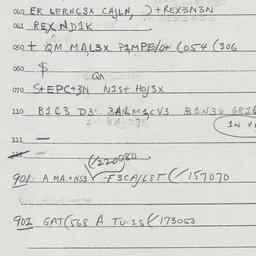 040 ER LERNC3X CAJLN, )+REX3N3N
041 REX ND1K
050 + QM MAL3X P1MPE/0+ (054 (306
060 $
Qn
070 S+EPC+3N N1S+ HOJ3X
110 B1G3 D3 3ARLM1CV3 B1N3X G816
(1N
111 —
(/220080
901 A MA.+NS3 -F3CA/L8T (/157070
902 GAT(568 A TU.1S (/173050